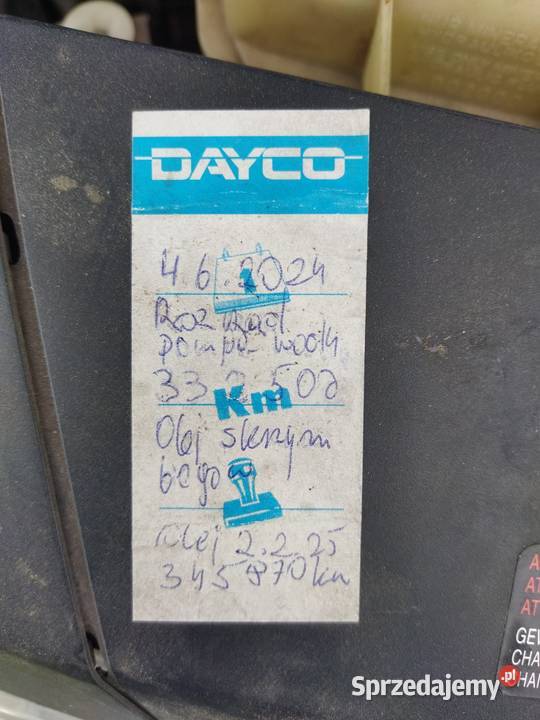 DAYCO
4.6.2024
Rozrząd
pompa wody
332500
Km
Olej skrzyni
biegów
olej 2.2.25
345 870 km
A
AT
AT
GEV
CHA
HAI
Sprzedajemy.pl